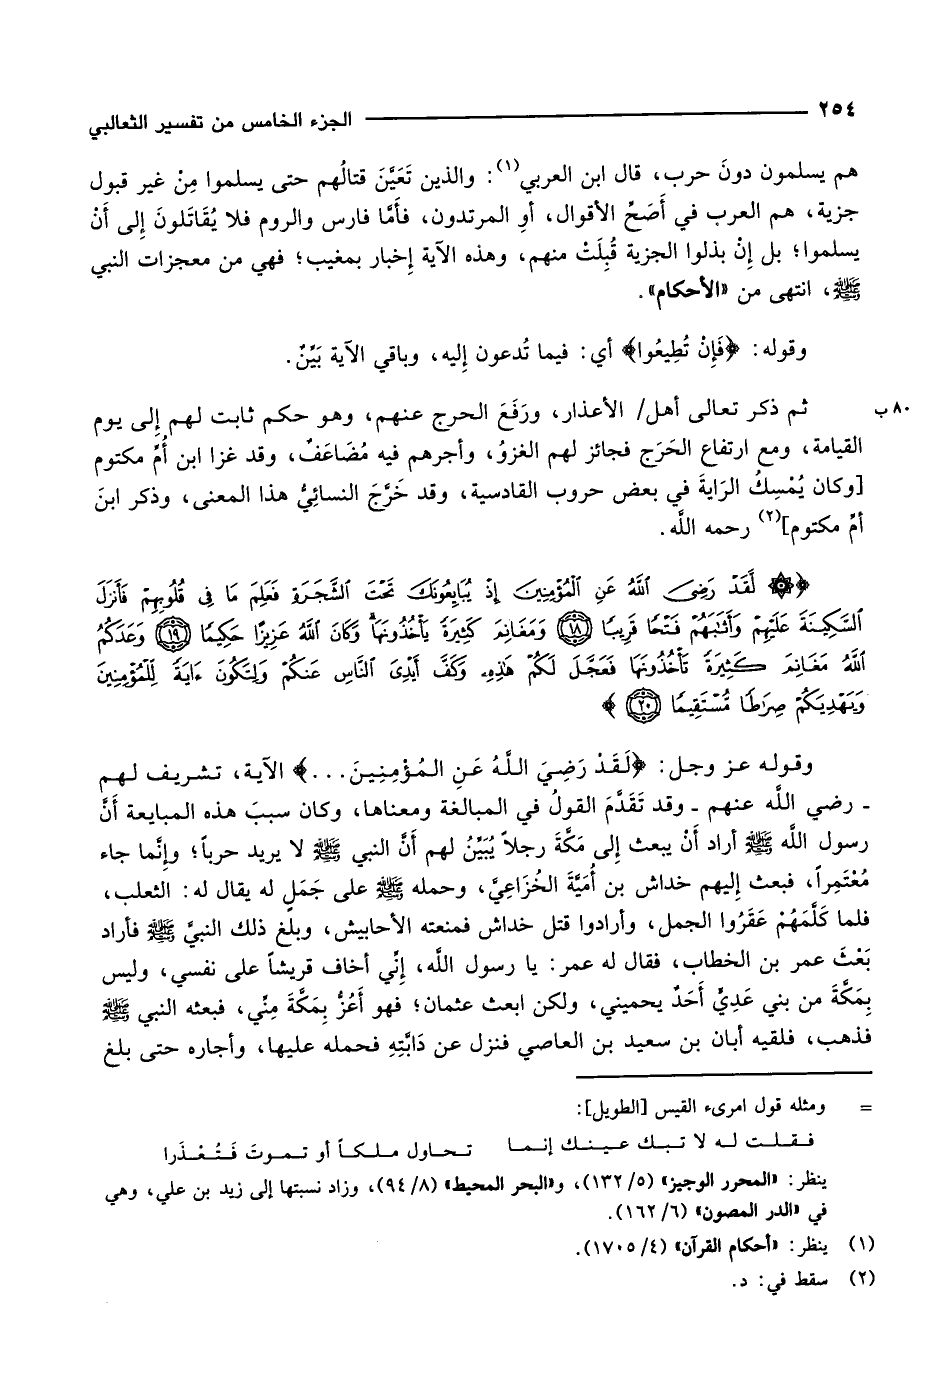 ٢٥٤ الجزء الخامس من تفسير الثعالبي
هم يسلمون دونَ حرب، قال ابن العربي(١): والذين تَعَيَّنَ قتالُهم حتى يسلموا مِنْ غير قبول
جزية، هم العرب في أَصَحِّ الأقوال، أوِ المرتدون، فأمَّا فارس والروم فلا يُقَاتَلونَ إلى أَنْ
يسلموا؛ بل إِنْ بذلوا الجزية قُبِلَتْ منهم، وهذه الآية إخبار بمغيب؛ فهي من معجزات النبي
ﷺ، انتهى من «الأحكام».
وقوله: ﴿فَإِنْ تُطِيعُوا﴾ أي: فيما تُدعون إليه، وباقي الآية بَيِّنٌ.
٨٠ب ثم ذكر تعالى أهل/ الأعذار، ورَفَعَ الحرج عنهم، وهو حكم ثابت لهم إلى يوم
القيامة، ومع ارتفاع الحَرَج فجائز لهم الغزوُ، وأجرهم فيه مُضَاعَفٌ، وقد غزا ابن أُمِّ مكتوم
[وكان يُمْسِكُ الرَايةَ في بعض حروب القادسية، وقد خَرَّجَ النسائيُّ هذا المعنى، وذكر ابنَ
أمِّ مكتوم](٢) رحمه اللَّه.
﴿۞ لَّقَدْ رَضِيَ اللَّهُ عَنِ الْمُؤْمِنِينَ إِذْ يُبَايِعُونَكَ تَحْتَ الشَّجَرَةِ فَعَلِمَ مَا فِي قُلُوبِهِمْ فَأَنزَلَ
السَّكِينَةَ عَلَيْهِمْ وَأَثَابَهُمْ فَتْحًا قَرِيبًا ١٨ وَمَغَانِمَ كَثِيرَةً يَأْخُذُونَهَا وَكَانَ اللَّهُ عَزِيزًا حَكِيمًا ١٩ وَعَدَكُمُ
اللَّهُ مَغَانِمَ كَثِيرَةً تَأْخُذُونَهَا فَعَجَّلَ لَكُمْ هَٰذِهِ وَكَفَّ أَيْدِيَ النَّاسِ عَنكُمْ وَلِتَكُونَ ءَايَةً لِّلْمُؤْمِنِينَ
وَيَهْدِيَكُمْ صِرَاطًا مُّسْتَقِيمًا ٢٠﴾
وقوله عز وجل: ﴿لَقَدْ رَضِيَ اللَّهُ عَنِ المُؤْمِنِينَ...﴾ الآية، تشريف لهم
ـ رضي اللَّه عنهم ـ وقد تَقَدَّمَ القولُ في المبالغة ومعناها، وكان سببَ هذه المبايعة أَنَّ
رسول اللَّه ﷺ أراد أَنْ يبعث إلى مَكَّةَ رجلاً يُبَيِّنُ لهم أَنَّ النبي ﷺ لا يريد حرباً؛ وإنَّما جاء
مُعْتَمِراً، فبعث إليهم خداش بن أُمَيَّةَ الخُزَاعِيَّ، وحمله ﷺ على جَمَلٍ له يقال له: الثعلب،
فلما كَلَّمَهُمْ عَقَرُوا الجمل، وأرادوا قتل خداش فمنعته الأحابيش، وبلغ ذلك النبيَّ ﷺ فأراد
بَعْثَ عمر بن الخطاب، فقال له عمر: يا رسول اللَّه، إنِّي أخاف قريشاً على نفسي، وليس
بِمَكَّةَ من بني عَدِيٍّ أَحَدٌ يحميني، ولكن ابعث عثمان؛ فهو أَعَزُّ بِمَكَّةَ مِنِّي، فبعثه النبي ﷺ
فذهب، فلقيه أبان بن سعيد بن العاصي فنزل عن دَابَّتِهِ فحمله عليها، وأجاره حتى بلغ
= ومثله قول امرىء القيس [الطويل]:
فقلت له لا تبك عينك إنما تحاول ملكاً أو تموتَ فَتُعْذَرا
ينظر: «المحرر الوجيز» (١٣٢/٥)، و«البحر المحيط» (٩٤/٨)، وزاد نسبتها إلى زيد بن علي، وهي
في «الدر المصون» (١٦٢/٦).
(١) ينظر: «أحكام القرآن» (١٧٠٥/٤).
(٢) سقط في: د.